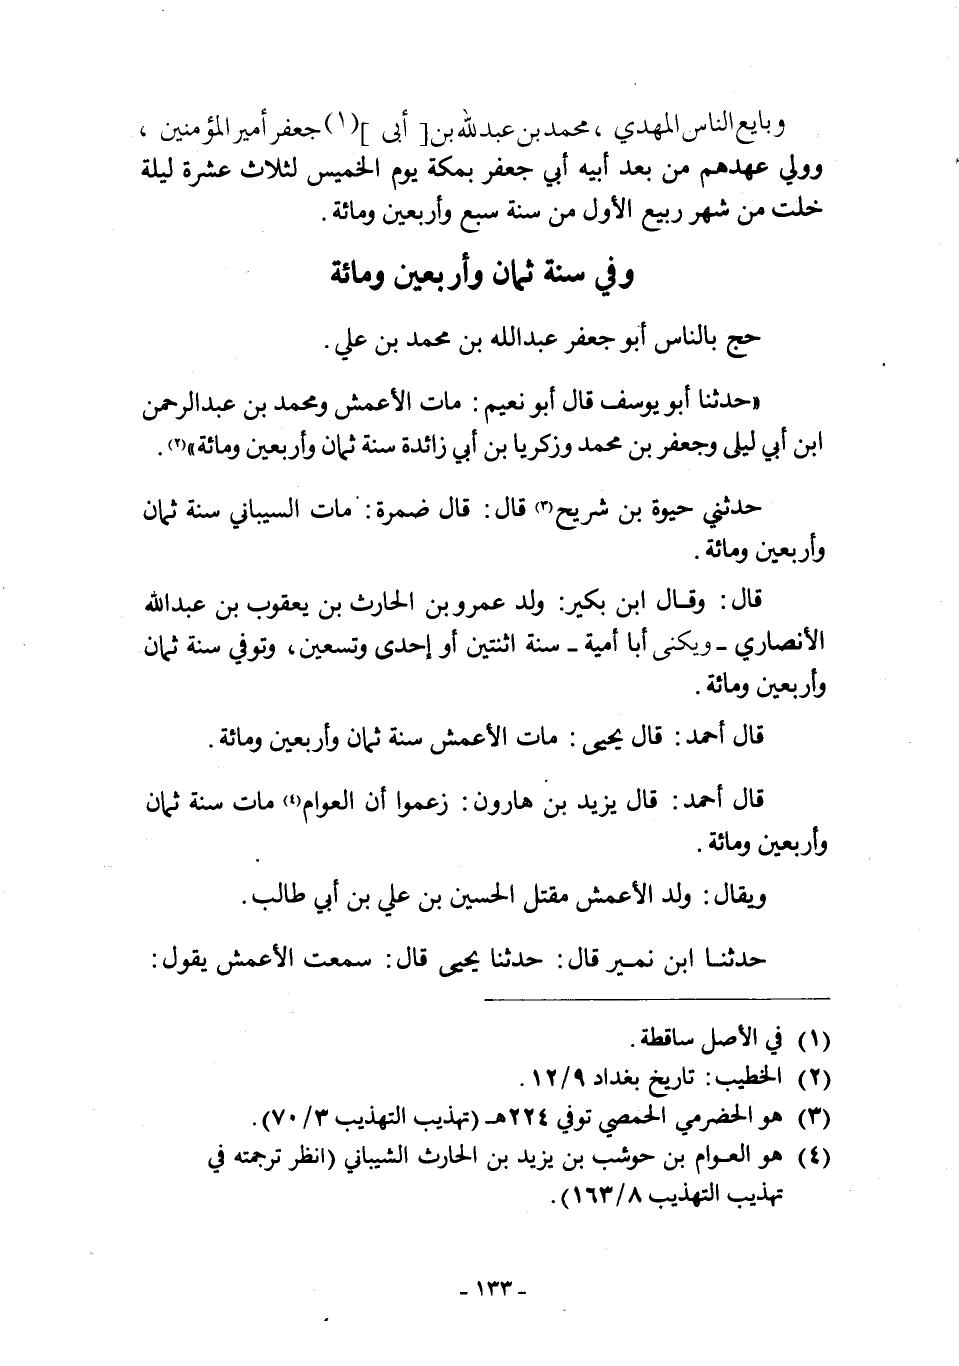 وبايع الناس المهدي ، محمد بن عبدالله بن [ أبي ](١) جعفر أمير المؤمنين ،
وولي عهدهم من بعد أبيه أبي جعفر بمكة يوم الخميس لثلاث عشرة ليلة
خلت من شهر ربيع الأول من سنة سبع وأربعين ومائة .
وفي سنة ثمان وأربعين ومائة
حج بالناس أبو جعفر عبدالله بن محمد بن علي .
«حدثنا أبو يوسف قال أبو نعيم : مات الأعمش ومحمد بن عبدالرحمن
ابن أبي ليلى وجعفر بن محمد وزكريا بن أبي زائدة سنة ثمان وأربعين ومائة»(٢) .
حدثني حيوة بن شريح(٣) قال : قال ضمرة : مات السيباني سنة ثمان
وأربعين ومائة .
قال : وقال ابن بكير : ولد عمرو بن الحارث بن يعقوب بن عبدالله
الأنصاري ـ ويكنى أبا أمية ـ سنة اثنتين أو إحدى وتسعين ، وتوفي سنة ثمان
وأربعين ومائة .
قال أحمد : قال يحيى : مات الأعمش سنة ثمان وأربعين ومائة .
قال أحمد : قال يزيد بن هارون : زعموا أن العوام(٤) مات سنة ثمان
وأربعين ومائة .
ويقال : ولد الأعمش مقتل الحسين بن علي بن أبي طالب .
حدثنا ابن نمير قال : حدثنا يحيى قال : سمعت الأعمش يقول :
(١) في الأصل ساقطة .
(٢) الخطيب : تاريخ بغداد ١٢/٩ .
(٣) هو الحضرمي الحمصي توفي ٢٢٤هـ (تهذيب التهذيب ٧٠/٣) .
(٤) هو العوام بن حوشب بن يزيد بن الحارث الشيباني (انظر ترجمته في
تهذيب التهذيب ١٦٣/٨) .
- ١٣٣ -